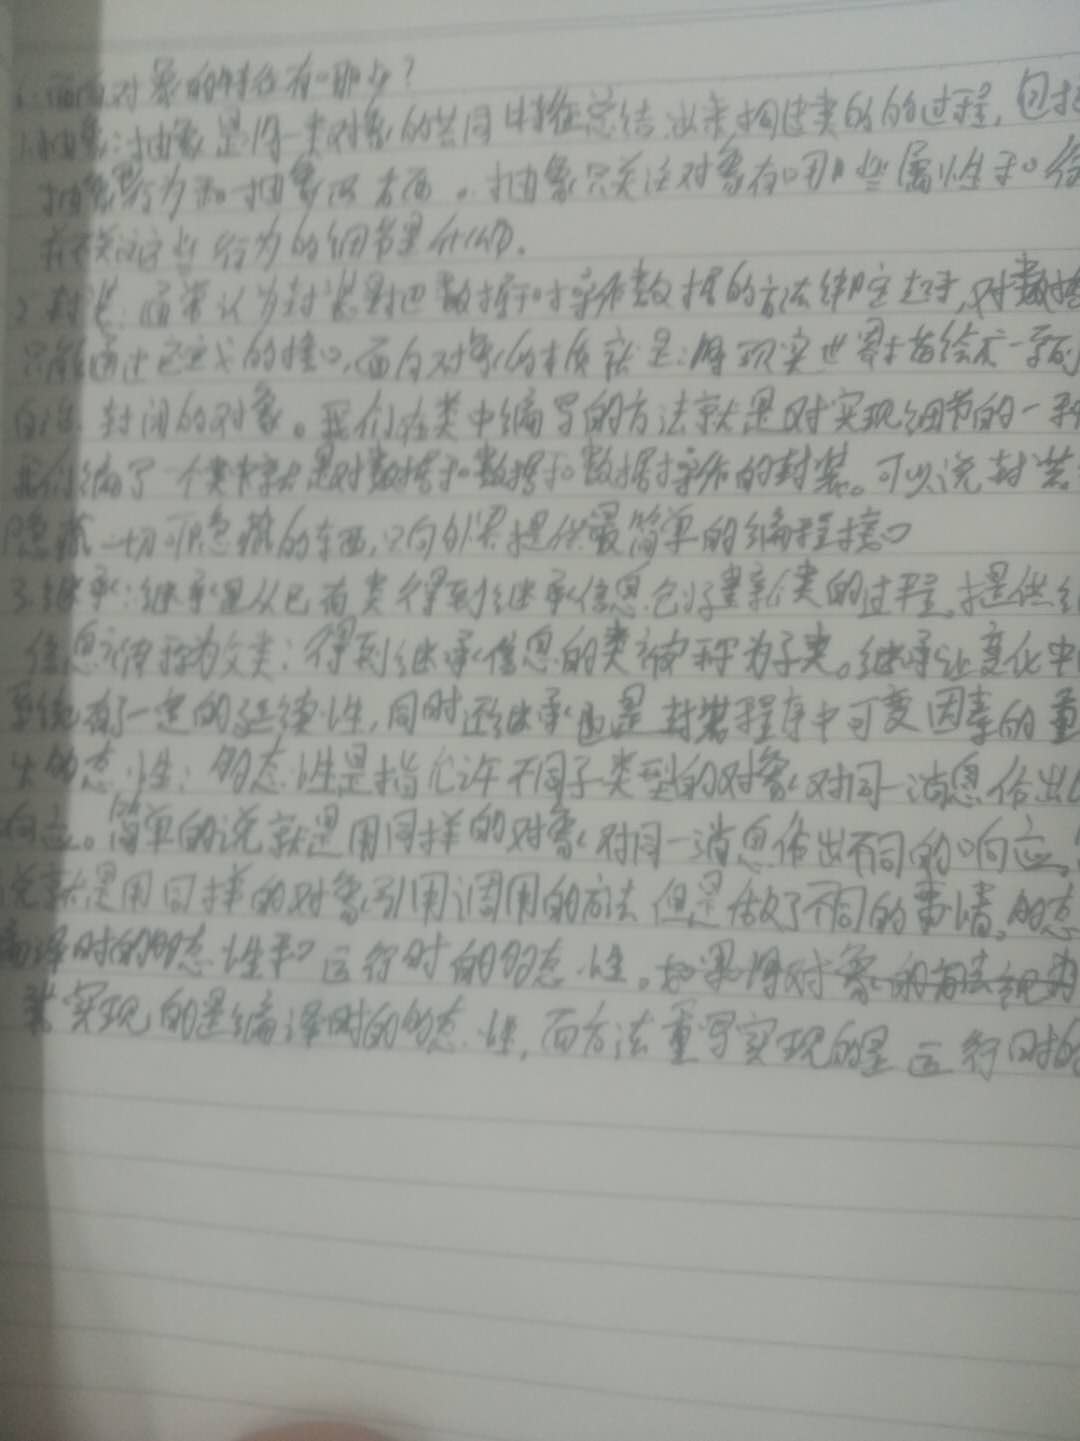 1.面向对象的特征有哪些?
1.抽象:抽象是将一类对象的共同特征总结出来构建类的的过程,包括
抽象行为和抽象 两方面。抽象只关注对象有哪些属性和
并不关注这些行为的细节是什么。
2.封装:通常认为封装是把数据和操作数据的方法绑定起来,对数据
只能通过已定义的接口,面向对象的本质就是将现实世界描绘成一系列
自治、封闭的对象。我们在类中编写的方法就是对实现细节的一种
我们编了一个类 就是对数据和数据和数据操作的封装。可以说封装
隐藏一切可隐藏的东西,只向外界提供最简单的编程接口
3.继承:继承是从已有类得到继承信息 新类的过程。提供
信息 被称为父类;得到继承信息的类被称为子类。继承让变化中
系统有了一定的延续性,同时 继承也是封装程序中可变因素的重
多态性:多态性是指允许不同子类型的对象对同一消息作出
响应。简单的说就是用同样的对象对同一消息作出不同的响应。
说就是用同样的对象引用调用的方法但是做了不同的事情。多态
编译时的多态性和运行时的多态性。如果将对象的方法视为
实现的是编译时的多态性,而方法重写实现的是运行时的